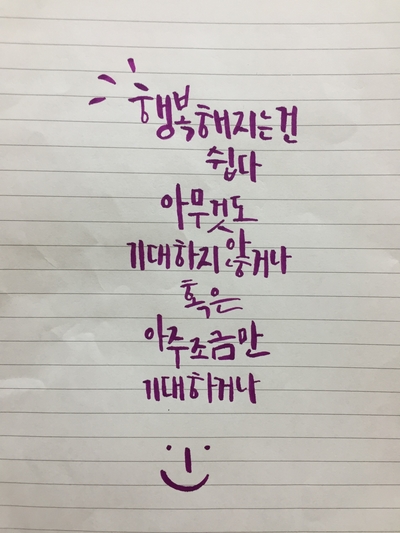 행복해지는건
쉽다
아무것도
기대하지않거나
혹은
아주조금만
기대하거나